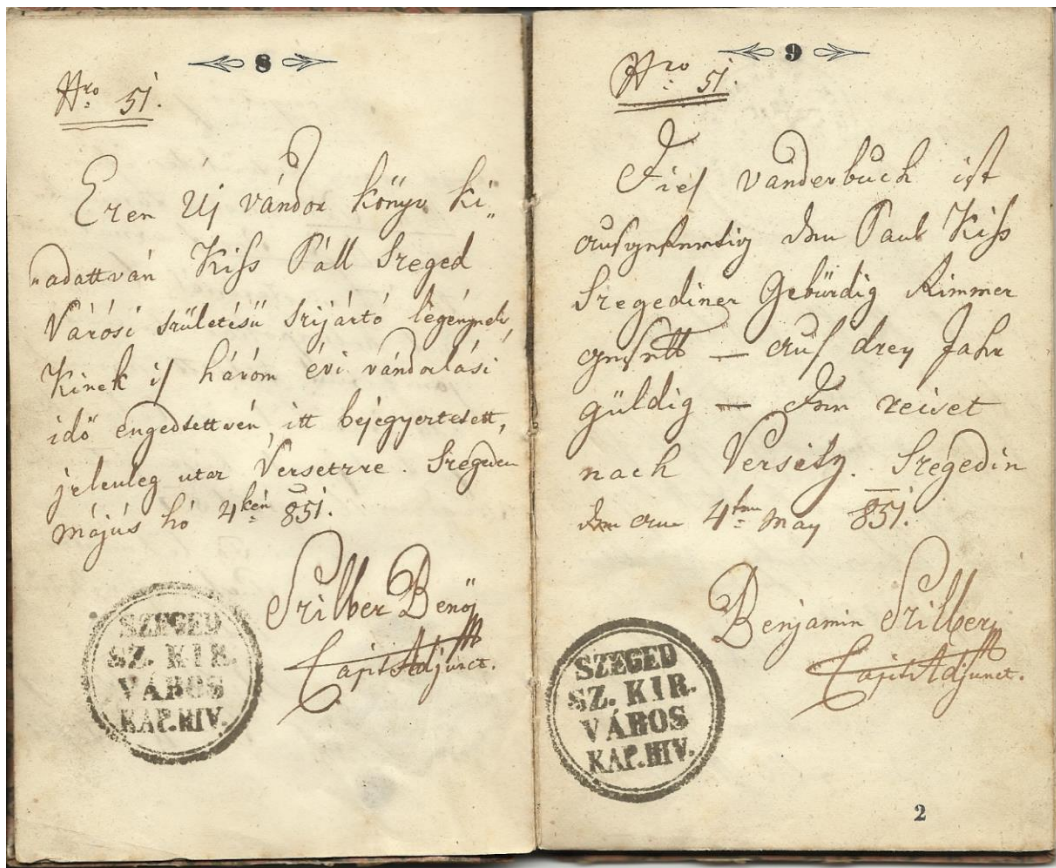 8
Nro 51.
Ezen Új vándor könyv ki„
„adattván Kiss Páll Szeged
Várósi születésű szijártó legénynek,
Kinek is három évi vándorlási
idő engedtettvén, itt bejegyeztetett,
jelenleg utaz Versetzre. Szegeden
május hó 4kén 851.
Szilber Benőj
Capit Adjunct.
SZEGED
SZ. KIR.
VÁROS
KAP. HIV.
9
Nro 51.
Dies vanderbuch ist
ausgefertig dem Paul Kiss
Szegediner Gebürdig Rimmer
gesell — auf drey Jahr
güldig — reiset
nach Versetz. Szegedin
den am 4ten May 851.
Benjamin Szilber
Capit Adjunct.
SZEGED
SZ. KIR.
VÁROS
KAP. HIV.
2